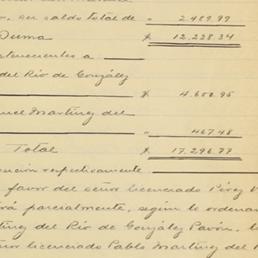 , su saldo total de " 2.489.99
Suma $ 12,228.34
tenecientes a
del Río de González
$ 4,600.95
uel Martínez del
" 467.48
Total $ 17,296.77
ención respectivamente
favor del señor licenciado Pérez V
rá parcialmente, según lo ordena
tínez del Río de González Pavón, l
ñor licenciado Pablo Martínez del R